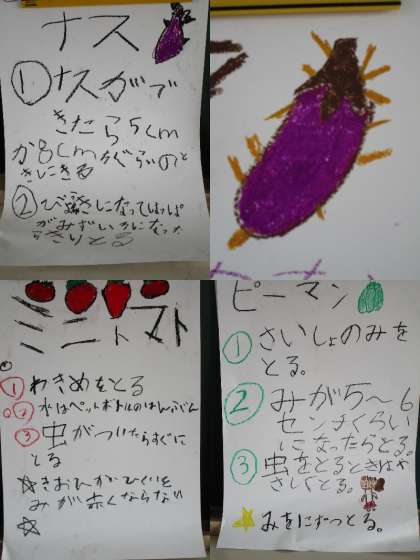 ナス
①ナスがで
きたら5cm
か8cmぐらいのと
きにきる
②びょうきになってはっぱ
がみずいろになった
らきりとる
ミニトマト
①わきめをとる
②水はペットボトルのはんぶん
③虫がついたらすぐに
とる
☆きおんがひくいと
みが赤くならない
☆
ピーマン
①さいしょのみを
とる。
②みが5〜6
センチくらい
になったらとる。
③虫をとるときはや
さしくとる。
みをにずつとる。